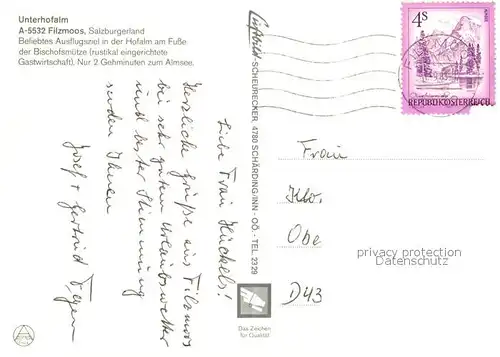 Unterhofalm
A-5532 Filzmoos, Salzburgerland
Beliebtes Ausflugsziel in der Hofalm am Fuße
der Bischofsmütze (rustikal eingerichtete
Gastwirtschaft). Nur 2 Gehminuten zum Almsee.
Liebe Frau Hückels!
Herzliche Grüße aus Filzmoos
bei sehr guten Urlaubswetter
und bester Stimmung
senden Ihnen
Josef + Gertrud
Luftbild-SCHEURECKER 4780 SCHÄRDING/INN - OÖ. - TEL. 23 29
4S
REPUBLIK ÖSTERREICH
Frau
Klo.
Obe
D43
privacy protection
Datenschutz
Das Zeichen
für Qualität